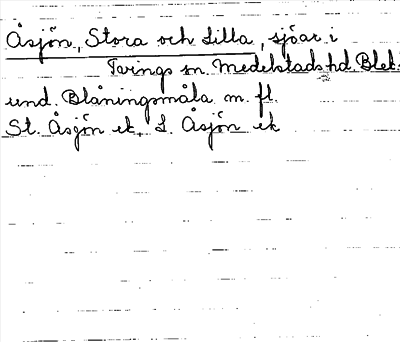 Åsjön, Stora och Lilla, sjöar i
Tvings sn. Medelstads hd. Blek.
und. Blåningsmåla m. fl.
St. Åsjön ek, L. Åsjön ek